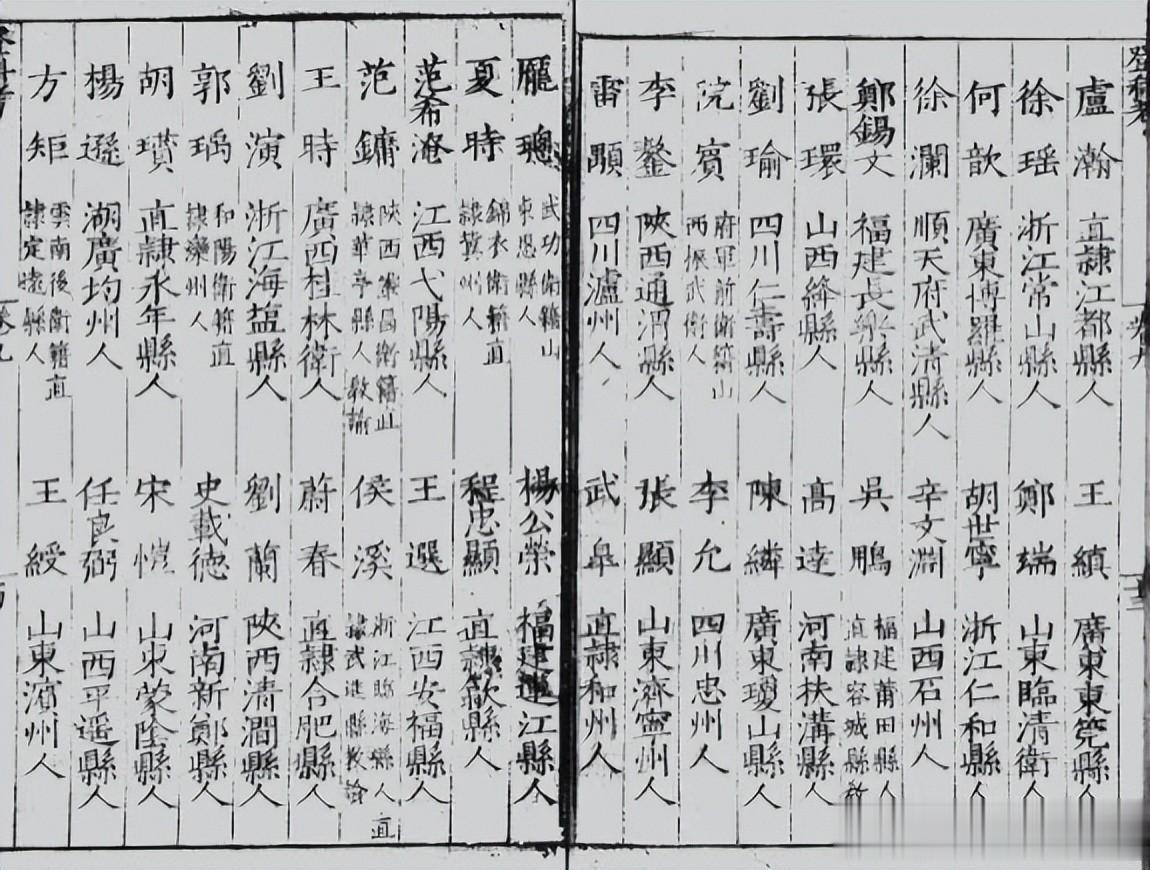 登科考
盧瀚 直隷江都縣人 王縝 廣東東筦縣人
徐瑤 浙江常山縣人 鄭瑞 山東臨清衛人
何歆 廣東博羅縣人 胡世寧 浙江仁和縣人
徐瀾 順天府武清縣人 辛文淵 山西石州人
鄭錫文 福建長樂縣人 吳鵬 福建莆田縣人直隷容城縣教
張環 山西絳縣人 高達 河南扶溝縣人
劉瑜 四川仁壽縣人 陳繗 廣東瓊山縣人
阮賓 府軍前衛籍山西振武衛人 李允 四川忠州人
李鏊 陝西通渭縣人 張顯 山東濟寧州人
雷顒 四川瀘州人 武臯 直隷和州人
龎璁 武功衛籍山東恩縣人 楊公榮 福建連江縣人
夏時 錦衣衛籍直隷冀州人 程忠顯 直隷歙縣人
范希淹 江西弋陽縣人 王選 江西安福縣人
范鏞 陝西鞏昌衛籍直隷華亭縣人教諭 侯溪 浙江臨海縣人直隷武進縣教諭
王時 廣西桂林衛人 蔚春 直隷合肥縣人
劉演 浙江海鹽縣人 劉蘭 陝西清澗縣人
郭瑀 和陽衛籍直隷灤州人 史載德 河南新鄭縣人
胡瓉 直隷永年縣人 宋愷 山東蒙陰縣人
楊遜 湖廣均州人 任良弼 山西平遥縣人
方矩 雲南後衛籍直隷定遠縣人 王綬 山東濱州人